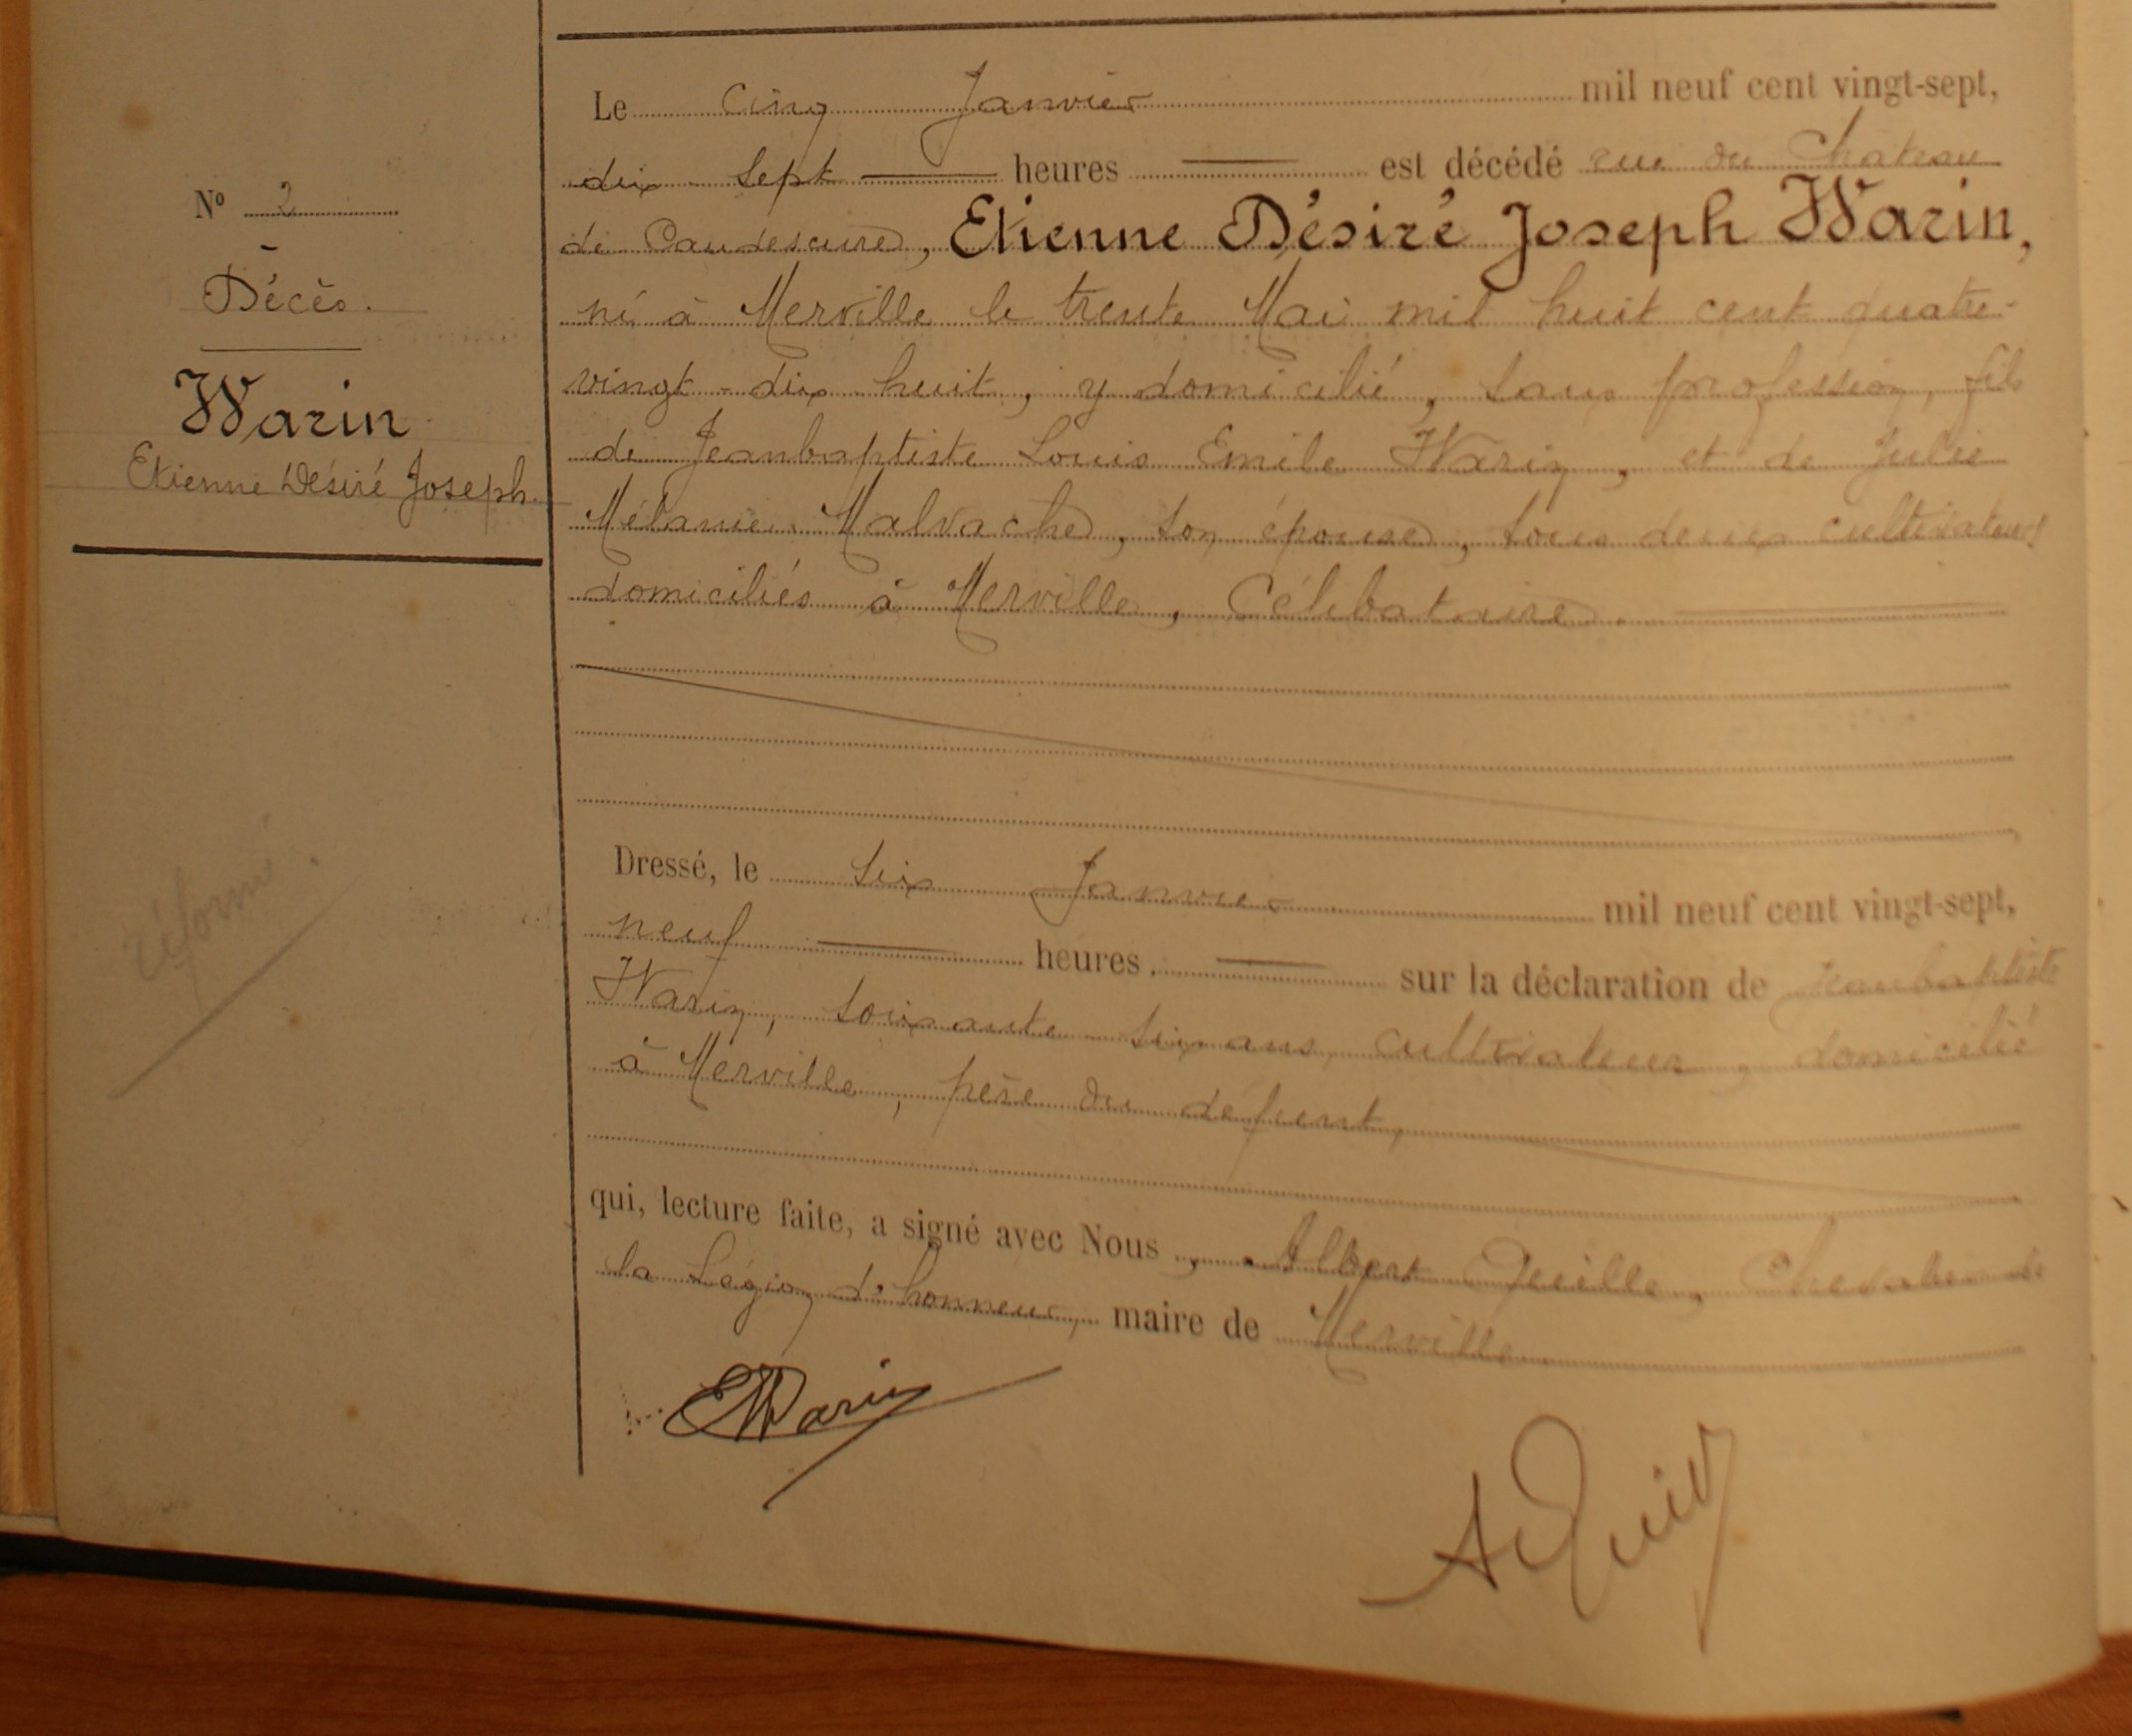 N° 2
Décès.
Warin
Etienne Désiré Joseph.
réformé.
Le cinq Janvier mil neuf cent vingt-sept,
dix sept heures est décédé rue du Chateau
de Caudescure, Etienne Désiré Joseph Warin,
né à Merville le trente Mai mil huit cent quatre-
vingt-dix huit, y domicilié, sans profession, fils
de Jeanbaptiste Louis Emile Warin, et de Julie
Mélanie Malvache, son épouse, tous deux cultivateurs
domiciliés à Merville, Célibataire.
Dressé, le six Janvier mil neuf cent vingt-sept,
neuf heures, sur la déclaration de Jeanbaptiste
Warin, soixante six ans, cultivateur, domicilié
à Merville, père du défunt,
qui, lecture faite, a signé avec Nous, Albert Chevalier de
la Légion d'honneur, maire de Merville
EWarin